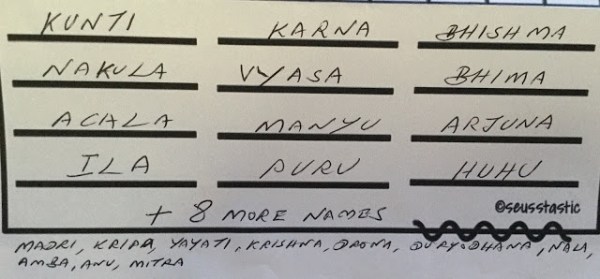 KUNTI KARNA BHISHMA
NAKULA VYASA BHIMA
ACHLA MANYU ARJUNA
ILA PURU HUHU
+ 8 MORE NAMES @seusstastic
MADRI, KRIPA, YAYATI, KRISHNA, DRONA, DURYODHANA, NALA,
AMBA, ANU, MITRA